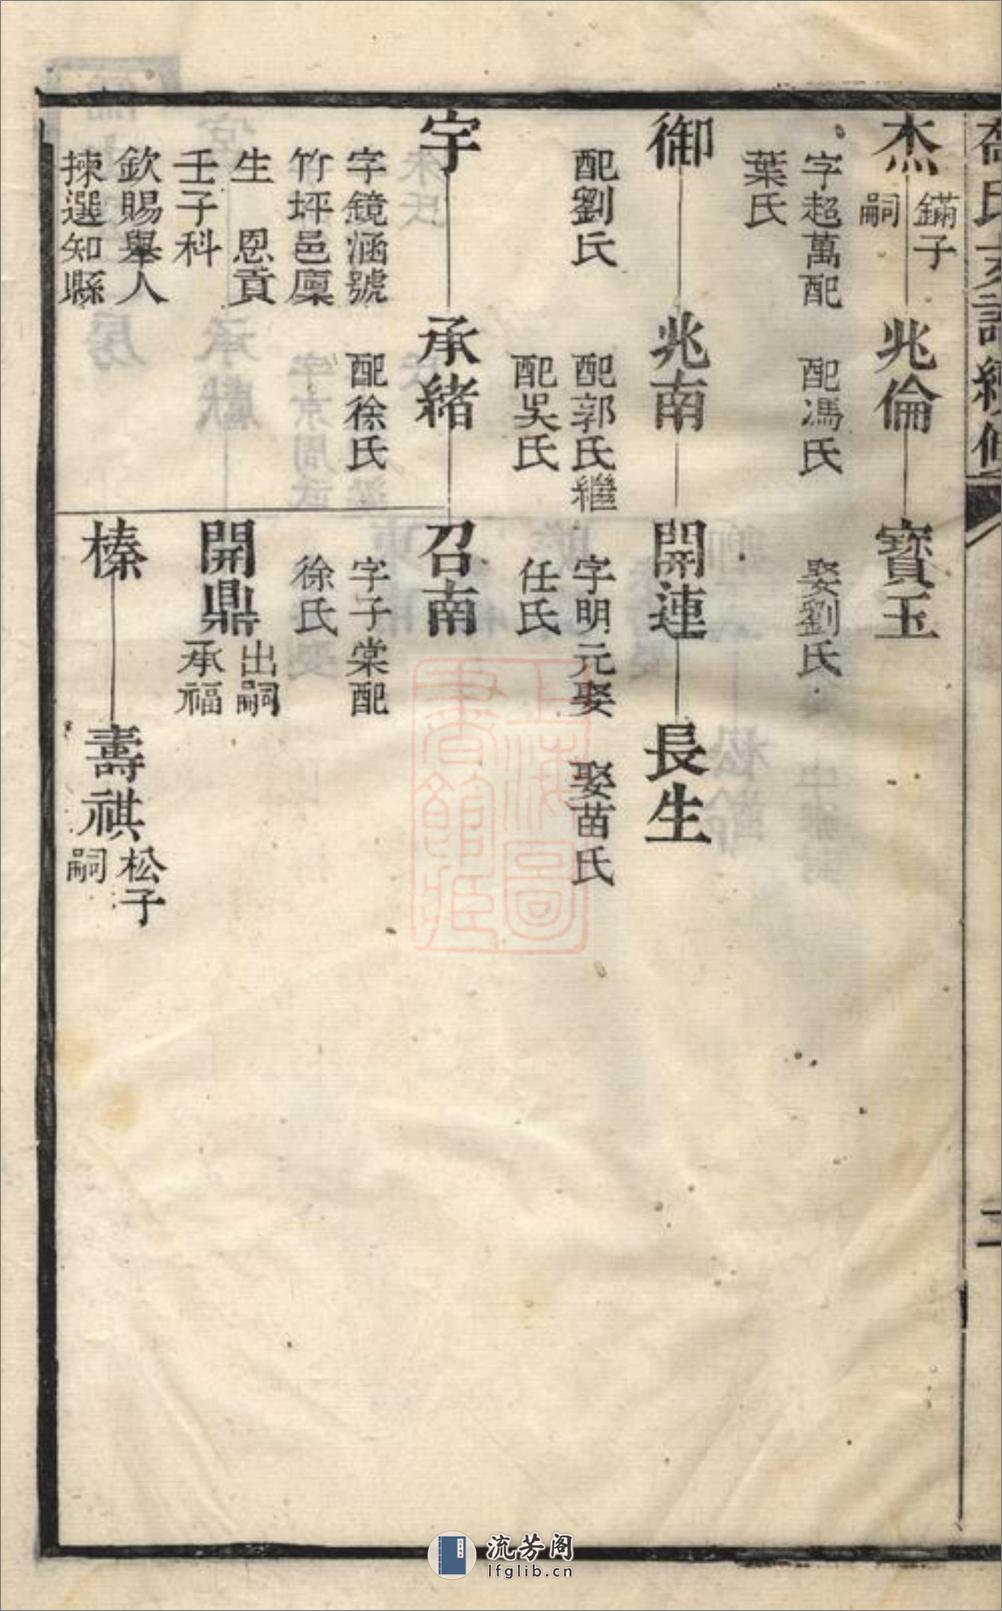 氏支譜
二
杰
鏋子
嗣
字超萬配
葉氏
兆倫
配馮氏
寶玉
娶劉氏
御
配劉氏
兆南
配郭氏繼
配吳氏
開連
字明元娶
任氏
長生
娶苗氏
宇
字鏡涵號
竹坪邑廩
生 恩貢
壬子科
欽賜舉人
揀選知縣
承緒
配徐氏
召南
字子棠配
徐氏
開鼎
出嗣
承福
榛
壽祺
松子
嗣
上海圖
書館藏
流芳阁
lfglib.cn